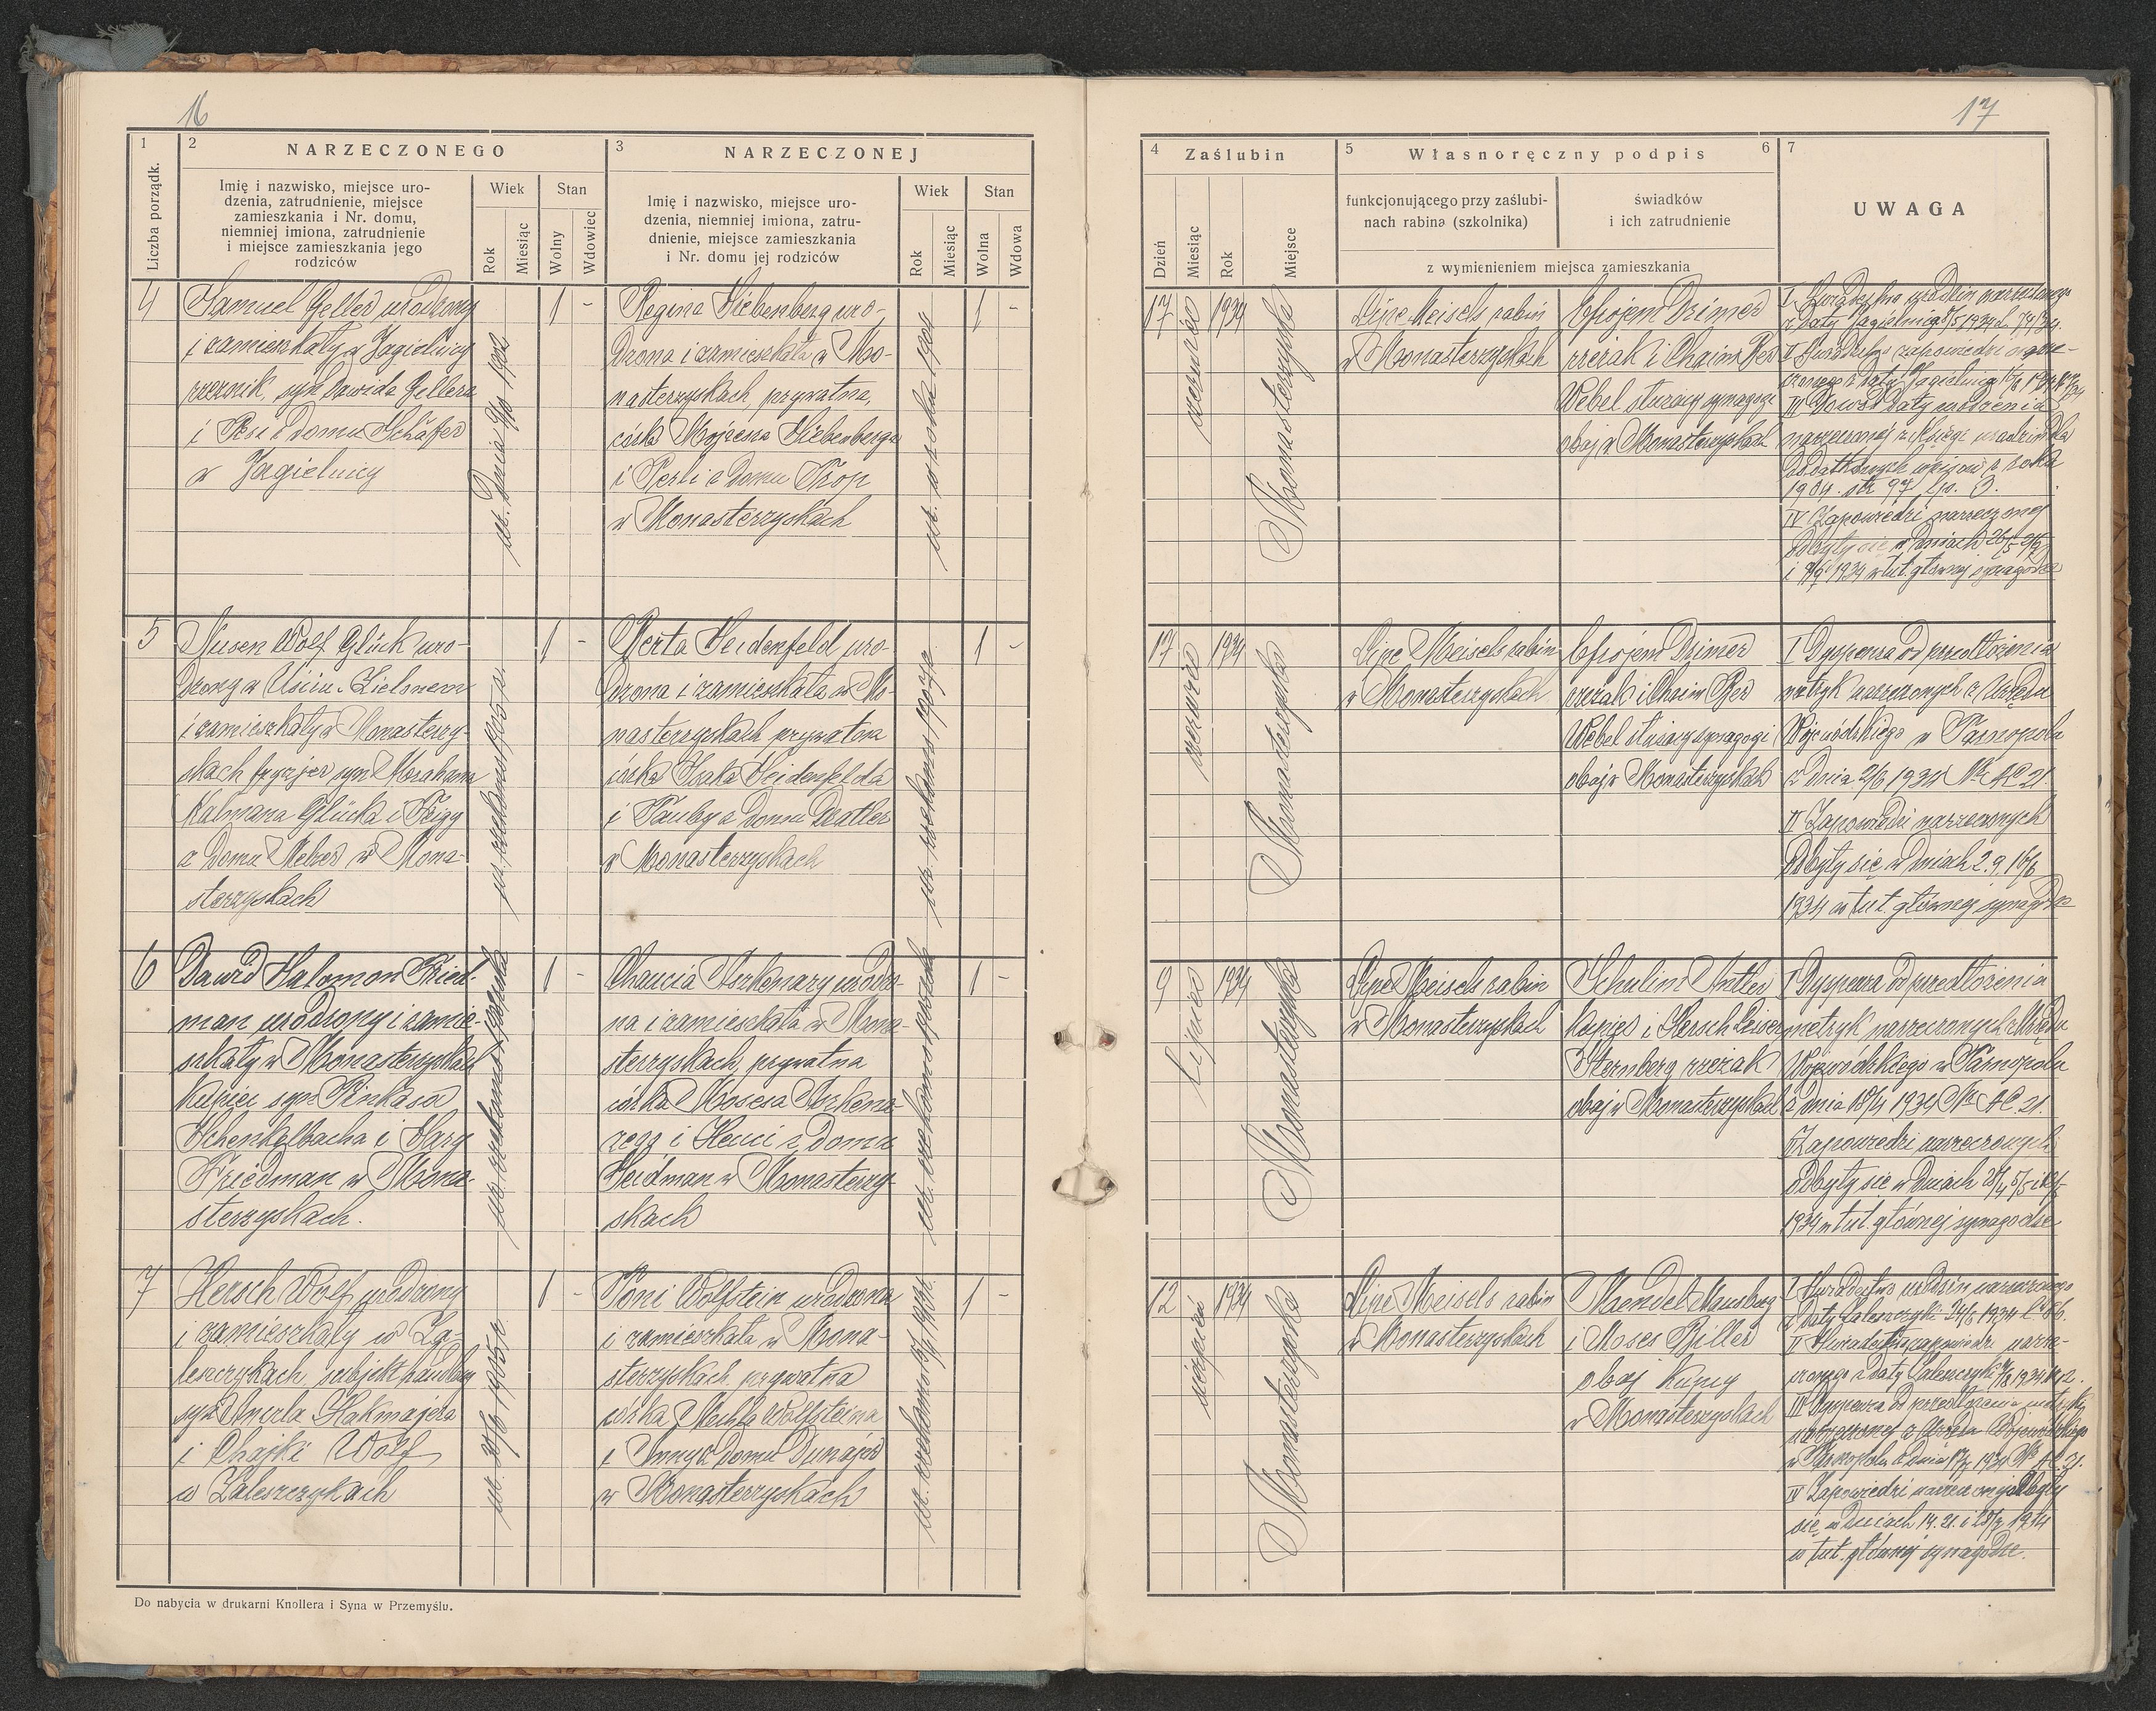 16
1
Liczba porządk.
2
NARZECZONEGO
Imię i nazwisko, miejsce uro-
dzenia, zatrudnienie, miejsce
zamieszkania i Nr. domu,
niemniej imiona, zatrudnienie
i miejsce zamieszkania jego
rodziców
Wiek
Rok
Miesiąc
Stan
Wolny
Wdowiec
3
NARZECZONEJ
Imię i nazwisko, miejsce uro-
dzenia, niemniej imiona, zatru-
dnienie, miejsce zamieszkania
i Nr. domu jej rodziców
Wiek
Rok
Miesiąc
Stan
Wolna
Wdowa
4
Samuel Geller urodzony
i zamieszkały w Jagielnicy
rzeznik, syn Dawida Gellera
i Resi z domu Schäfer
w Jagielnicy
1 -
Regina Siebenberg uro-
dzona i zamieszkała w Mo-
nasterzyskach, prywatna,
córka Mojżesza Siebenberga
i Perli z domu Prop
w Monasterzyskach
ur. w roku 1904
1 -
5
Nusen Wolf Glück uro-
dzony w Uściu-Zielonem
i zamieszkały w Monasterzy-
skach fryzjer syn Abrahama
Kalmana Glücka i Feigy
z domu Melzer w Mona-
sterzyskach
ur. rzekomo 1905 r.
1 -
Berta Seidenfeld uro-
dzona i zamieszkała w Mo-
nasterzyskach prywatna
córka Isaka Seidenfelda
i Tauby z domu Deatler
w Monasterzyskach
ur. rzekomo 1907 r.
1 -
6
Dawid Salomon Fried-
man urodzony i zamie-
szkały w Monasterzyskach
kupiec syn Pinkasa
Schenkelbacha i Sary
Friedman w Mona-
sterzyskach.
1 -
Chancia Aszkenazy urodzo-
na i zamieszkała w Mona-
sterzyskach, prywatna
córka Mosesa Aszkena-
zego i Henci z domu
Seidman w Monasterzy-
skach
1 -
7
Hersch Wolf urodzony
i zamieszkały w Za-
leszczykach, subjekt handlowy
syn Anerla Hakmajera
i Chajki Wolf
w Zaleszczykach
1 -
Toni Wolfstein urodzona
i zamieszkała w Mona-
sterzyskach prywatna
córka Mechla Wolfsteina
i Anny z domu Dunajer
w Monasterzyskach
1 -
Do nabycia w drukarni Knollera i Syna w Przemyślu.
17
4
Zaślubin
Dzień
Miesiąc
Rok
Miejsce
5
Własnoręczny podpis
6
funkcjonującego przy zaślubi-
nach rabina (szkolnika)
świadków
i ich zatrudnienie
z wymienieniem miejsca zamieszkania
7
UWAGA
17
czerwiec
1934
Monasterzyska
Lipe Meisels rabin
w Monasterzyskach
Efrojem Dzimer
rzeżak i Chaim Ber
Webel służący synagogi
obaj w Monasterzyskach
I Świadectwo urodzin narzeczonego
z daty Jagielnica
II Świadectwo zapowiedzi narze-
czonego z daty Jagielnica
III Dowód daty urodzenia
narzeczonej z księgi urodzin dla
dodatkowych wpisów z roku
1904. str 97 lp. 3.
IV Zapowiedzi narzeczonej
odbyły się w dniach 26/5 2/6
i 9/6 1934 w tut. głównej synagodze
17
czerwiec
1934
Monasterzyska
Lipe Meisels rabin
w Monasterzyskach
Efrojem Dzimer
rzeżak i Chaim Ber
Webel służący synagogi
obaj w Monasterzyskach
I Dyspenza od przedłożenia
metryk narzeczonych z Urzędu
Wojewódzkiego w Tarnopolu
z dnia 2/3 1934 Nr AC 21.
II Zapowiedzi narzeczonych
odbyły się w dniach 2. 9. 16/6
1934 w tut. głównej synagodze
9
lipiec
1934
Monasterzyska
Lipe Meisels rabin
w Monasterzyskach
Schulim Antler
kupiec i Hersch Leiser
Sternberg rzeżak
obaj w Monasterzyskach
I Dyspenza od przedłożenia
metryk narzeczonych z Urzędu
Wojewódzkiego w Tarnopolu
z dnia 18/4 1934 Nr AC 21.
II Zapowiedzi narzeczonych
odbyły się w dniach 28/4 5/5 i 12/5
1934 w tut. głównej synagodze
12
sierpień
1934
Monasterzyska
Lipe Meisels rabin
w Monasterzyskach
Mendel Mansberg
i Moses Biller
obaj kupcy
w Monasterzyskach
I Świadectwo urodzin narzeczonego
z daty Zaleszczyki
II Świadectwo zapowiedzi narze-
czonego z daty Zaleszczyki
III Dyspenza od przedłożenia metryki
narzeczonej z Urzędu Wojewódzkiego
w Tarnopolu z dnia
IV Zapowiedzi narzeczonej odbyły
się w dniach 14. 21. i 28/7 1934
w tut. głównej synagodze.